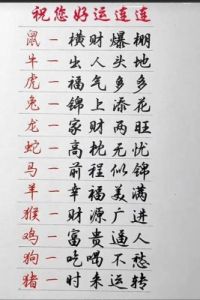 祝您好运连连
鼠一横财爆棚
牛一出人头地
虎一福气多多
兔一锦上添花
龙一家财两旺
蛇一高枕无忧
马一前程似锦
羊一幸福美满
猴一财源广进
鸡一富贵逼人
狗一吃喝不愁
猪一时来运转